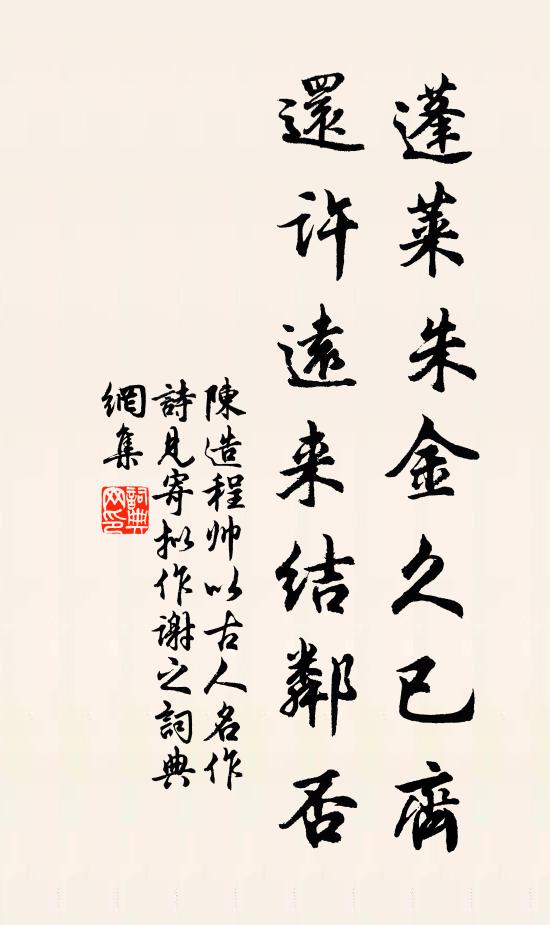 蓬萊朱金久已齊
還許遠来結鄰否
陳造程帅以古人名作
詩見寄拟作谢之詞典
網集
詞典
网印